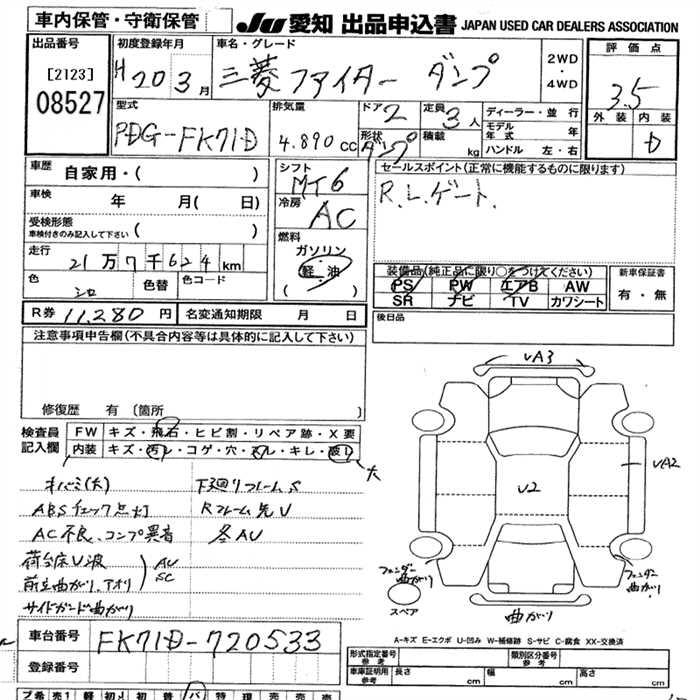 車内保管・守衛保管
JU 愛知 出品申込書 JAPAN USED CAR DEALERS ASSOCIATION
出品番号
[2123]
08527
初度登録年月
H20 3月
車名・グレード
三菱 ファイター ダンプ
2WD・4WD
評価点
3.5
外装 内装
D
型式
PDG-FK71D
排気量
4.890 cc
ドア 2
形状 ダンプ
定員 3人
積載 kg
ディーラー・並行
モデル年式 年
ハンドル 左・右
車歴 自家用・( )
車検 年 月( 日)
受検形態
車検付きのみ記入して下さい ( )
走行 21万7千624km
色 シロ 色替 色コード
シフト MT6
冷房 AC
燃料
ガソリン
・
軽油
( )
セールスポイント(正常に機能するものに限ります)
R.L.ゲート.
装備品(純正品に限り○をつけてください)
PS PW エアB AW
SR ナビ TV カワシート
新車保証書
有・無
後日品
R券 11,280円 名変通知期限 月 日
注意事項申告欄(不具合内容等は具体的に記入して下さい)
修復歴 有 〔箇所 〕
検査員記入欄
FW キズ・飛石・ヒビ割・リペア跡・X要
内装 キズ・汚レ・コゲ・穴・スレ・キレ・破レ 大
下廻りフレームS
ABSチェック点灯 Rフレーム先U
AC不良、コンプ異音 冬AU
荷台床U波
前立曲がり、アオリ
AU
SC
サイドガード曲がり
UA3
U2
UA2
フェンダー曲がり
フェンダー曲がり
スペア
曲がり
A-キズ E-エクボ U-凹み W-補修跡 S-サビ C-腐食 XX-交換済
車台番号 FK71D-720533
登録番号
形式指定番号 参考
類別区分番号 参考
車庫証明用 参考 長さ cm 幅 cm 高さ cm